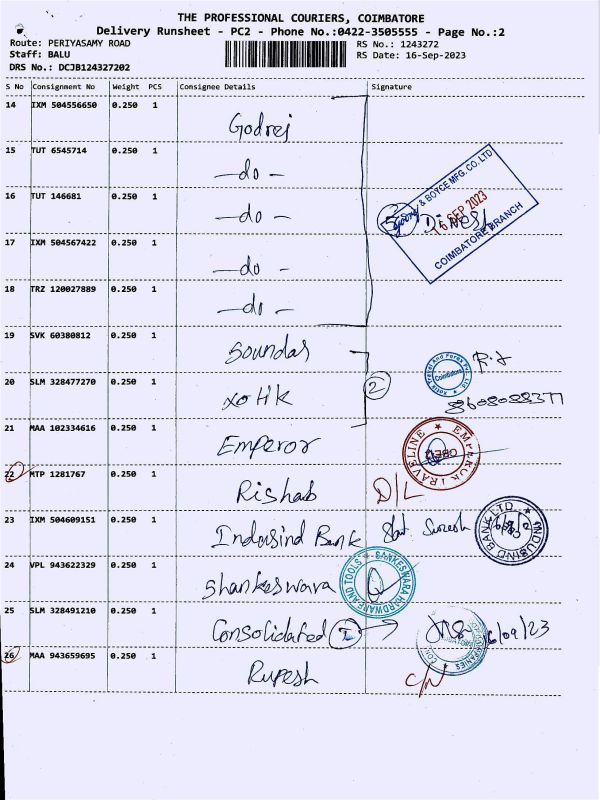 THE PROFESSIONAL COURIERS, COIMBATORE
Delivery Runsheet - PC2 - Phone No.:0422-3505555 - Page No.:2
Route: PERIYASAMY ROAD
RS No.: 1243272
Staff: BALU
RS Date: 16-Sep-2023
DRS No.: DCJB124327202
S No Consignment No Weight PCS Consignee Details Signature
14 IXM 504556650 0.250 1
Godrej
15 TUT 6545714 0.250 1
-do-
16 TUT 146681 0.250 1
-do-
& BOYCE MFG. CO. LTD
16 SEP 2023
COIMBATORE BRANCH
5
17 IXM 504567422 0.250 1
-do-
18 TRZ 120027889 0.250 1
-do-
19 SVK 60380812 0.250 1
Soundar
20 SLM 328477270 0.250 1
2
Coimbatore
21 MAA 102334616 0.250 1
Emperor
EMPEROR TRAVELINE
22 MTP 1281767 0.250 1
Rishab D/L
23 IXM 504609151 0.250 1
Indusind Bank Suresh
INDUSIND BANK LTD
24 VPL 943622329 0.250 1
Shankeswara
SANKESWARA HARDWARE AND TOOLS
25 SLM 328491210 0.250 1
Consolidated 16/09/23
26 MAA 943659695 0.250 1
Rupesh C/N